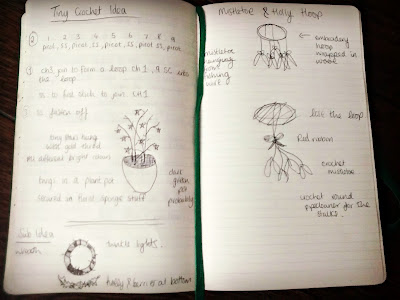 Tiny Crochet Idea
② 1 2 3 4 5 6 7 8 9
picot, SS, picot, SS, picot, SS, picot, SS, picot
① ch3 join to form a loop ch 1, 9 DC into
the loop
SS to first stitch to join. CH1
③ SS fasten off
tiny stars hung
with gold thread
in different bright colours
twigs in a plant pot
secured in hard sponge stuff
dark
green
pot
probably
Sub Idea
wreath
twinkle lights.
holly & berries at bottom
Mistletoe & Holly Hoop
mistletoe
hanging
from
fishing
wire
embroidery
hoop
wrapped in
wool
half the hoop
Red ribbon
crochet
mistletoe
crochet round
pipecleaner for the
stalks.